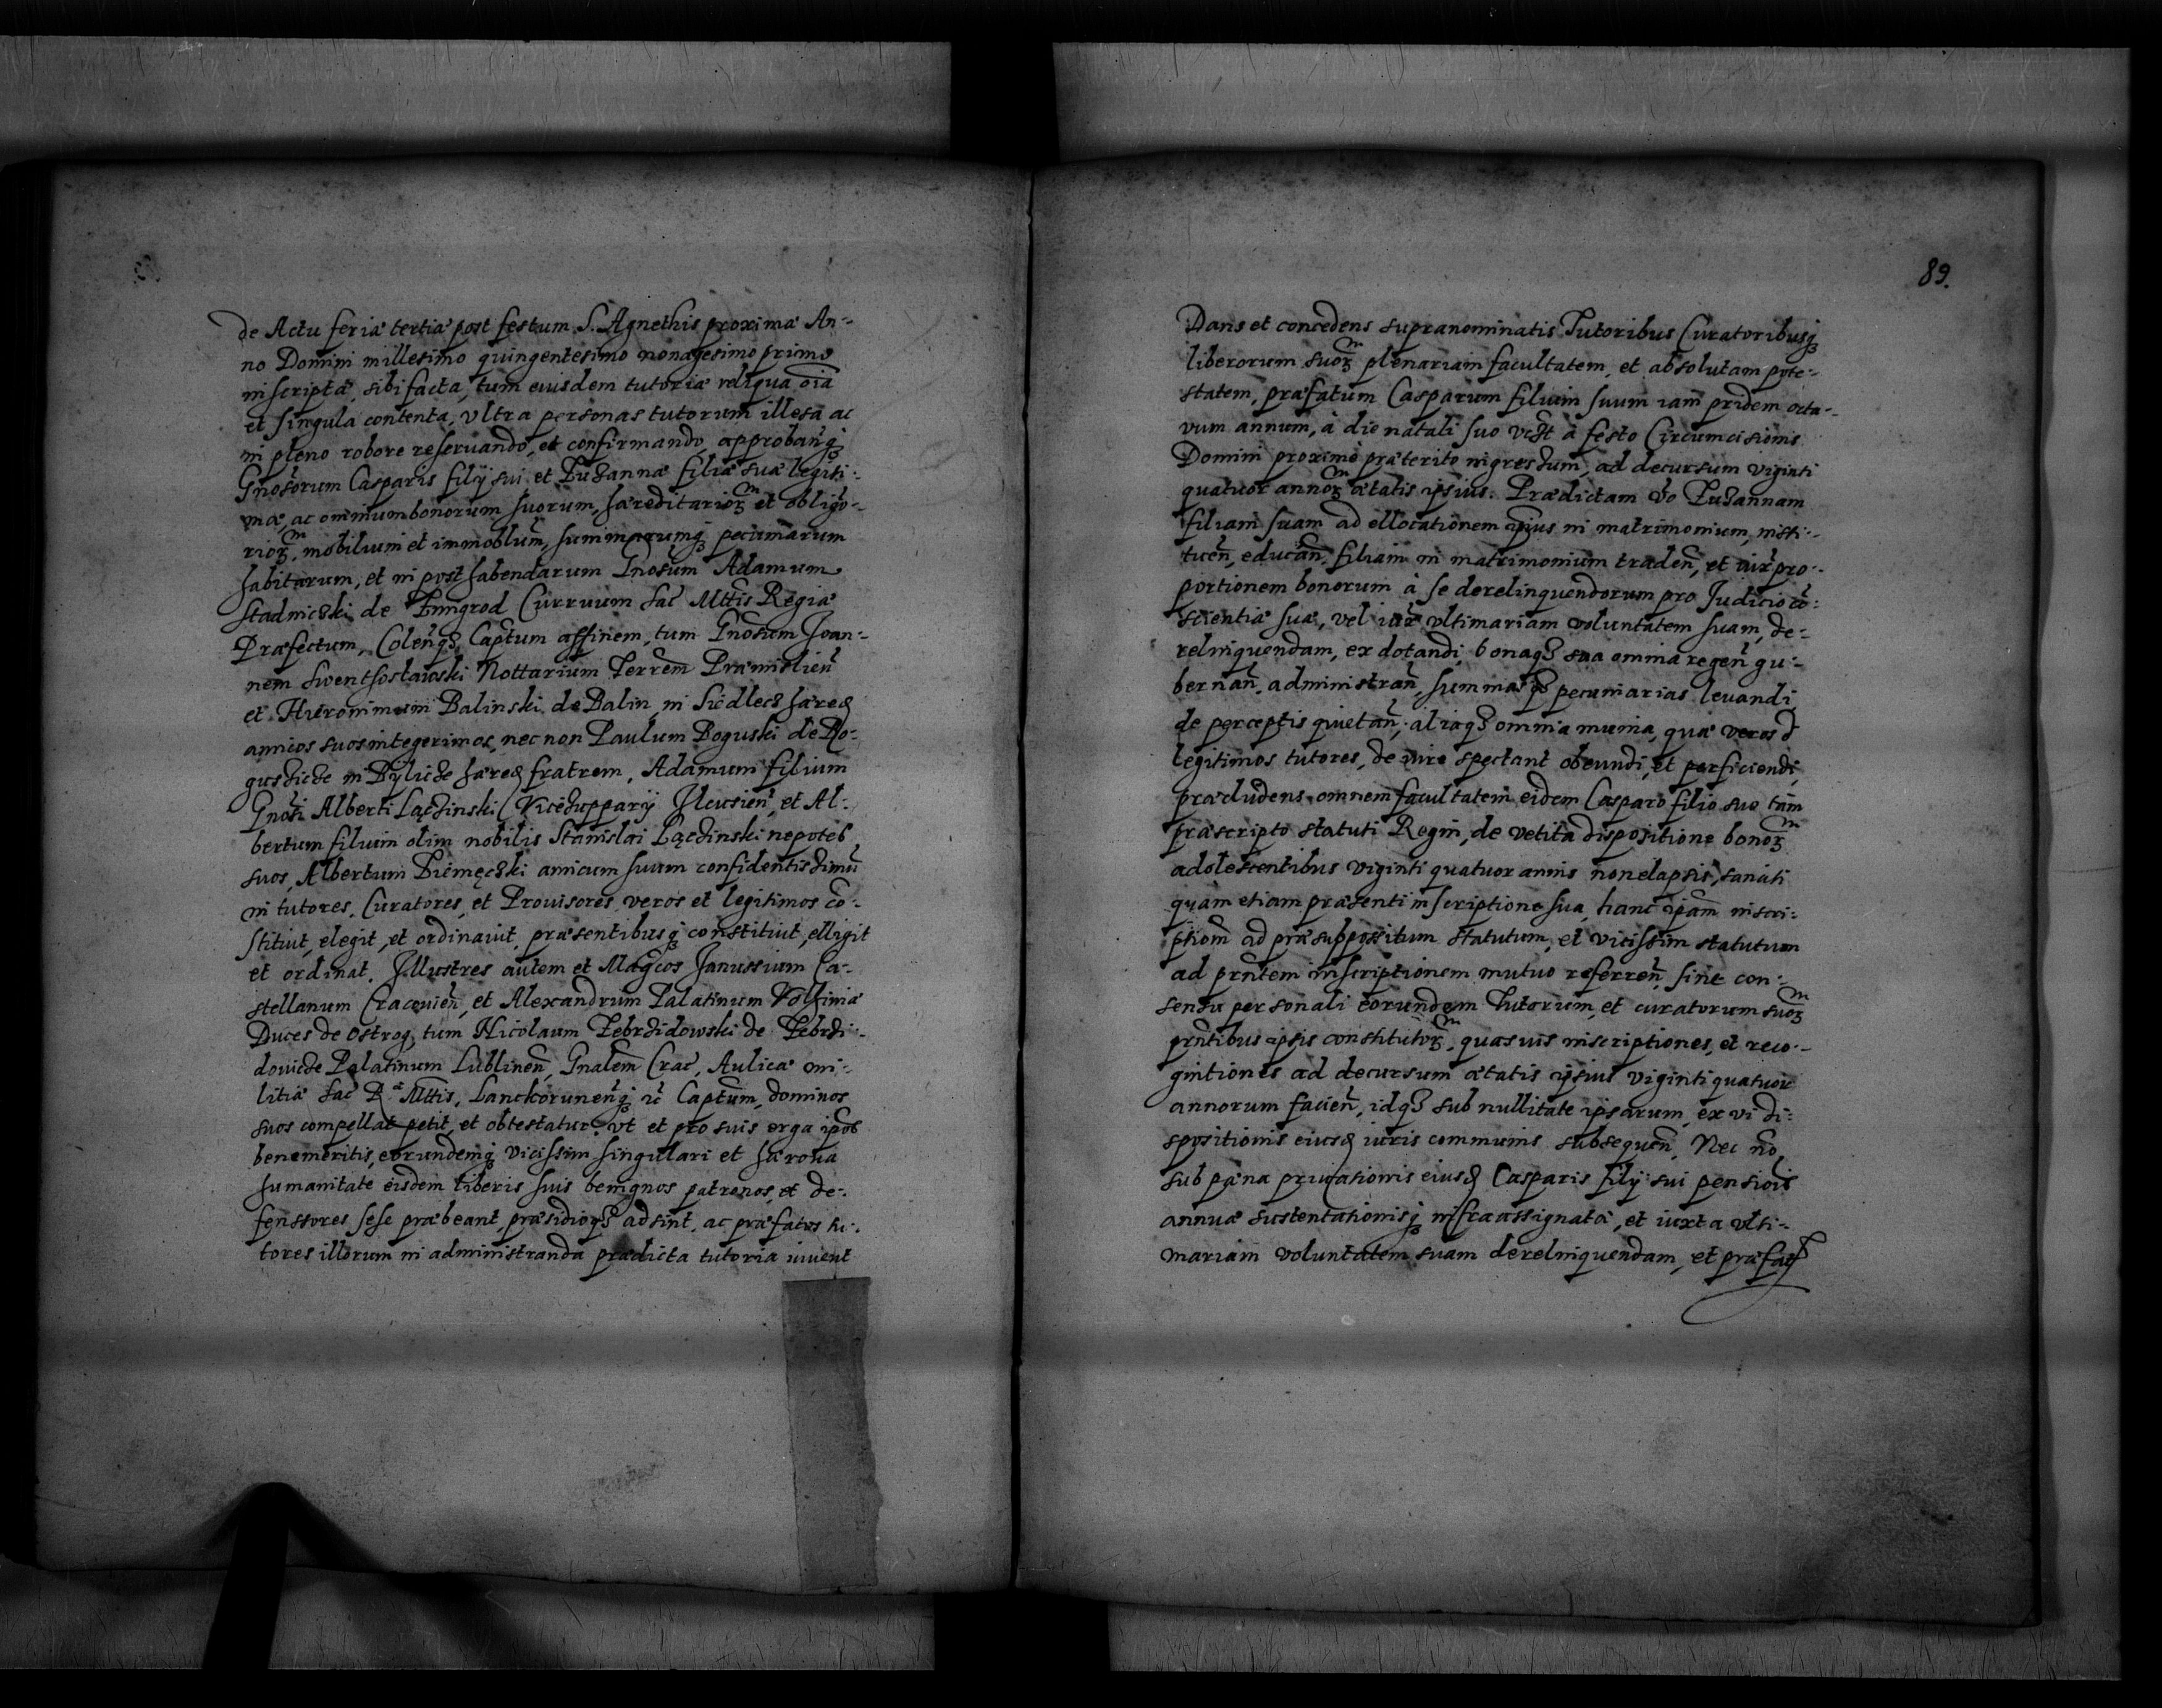 de Actu feriæ tertiæ post festum S. Agnethis proximæ An-
no Domini millesimo quingentesimo nonagesimo primo
inscripta, sibi facta, tum eiusdem tutoriæ reliqua oia
et singula contenta, vltra personas tutorum illesa ac
in pleno robore reservando, et confirmando approbanq;
Gnosorum Casparis filij sui et Zuzannæ filiæ suæ legiti-
mæ, ac omnium bonorum suorum, hæreditarioꝝ et obligo-
rioꝝ, mobilium et immoblum, summarumq; pecuniarum
habitarum, et in post habendarum Gnosum Adamum
Stadniczki de Zmigrod Curruum Sac Mttis Regiæ
Præfectum, Colenqȝ Captum affinem, tum Gnosum Joan-
nem Swentosławski Nottarium Terrem Præmislien
et Hieronimum Balinski de Balin in Siedlecz hæred
amicos suos integerimos, nec non Paulum Boguski de Bo-
guszicze in Bylicze hæred fratrem, Adamum filium
Gnosi Alberti Łączinski Vicezupparij Ilcusien, et Al-
bertum filium olim nobilis Stanislai Łączinski nepotes
suos, Albertum Biemęczki amicum suum confidentissimu
in tutores, Curatores, et Provisores veros et legitimos co-
stituit, elegit, et ordinauit, præsentibusq; constituit, elligit
et ordinat. Jllustres autem et Magcos Janussium Ca-
stellanum Cracouien, et Alexandrum Palatinum Volhiniæ
Duces de Ostrog, tum Nicolaum Zebrzidowski de Zebrzi-
dowicze Palatinum Lublinen, Gnalem Crac, Aulicæ mi-
litiæ Sac R.æ Mttis, Lanckorunenq; ic Captum, dominos
suos compellat petit, et obtestatur, vt et pro suis erga ipos
benemeritis, eorundemq; vicissim singulari et
humanitate eisdem liberis suis benignos patronos et de-
fenssores sese præbeant, præsidioqȝ adsint, ac præfatos tu-
tores illorum in administranda prædicta tutoria iuvent
89.
Dans et concedens supranominatis Tutoribus Curatoribusq;
liberorum suoꝝ plenariam facultatem, et absolutam pote-
statem, præfatum Casparum filium suum iam pridem octa-
vum annum, à die natali suo vidt à festo Circumcisionis
Domini proximo præterito ingressum, ad decursum viginti
quatuor annoꝝ ætatis ipsius. Prædictam vo Zuzannam
filiam suam ad ellocationem ipius in matrimonium, insti-
tuen, educan, filiam in matrimonium traden, et iux pro-
portionem bonorum à se derelinquendorum pro Judicio co-
scientiæ suæ, vel iux vltimariam voluntatem suam, de-
relinquendam, ex dotandi, bonaqȝ sua omnia regen gu-
bernan, administran, summasqȝ pecuniarias leuandi,
de perceptis quietan, aliaqȝ omnia munia, quæ veros
legitimos tutores, de iure spectant obeundi, et perficiendi,
præcludens omnem facultatem eidem Casparo filio suo tam
præscripto statuti Regni, de vetita dispositione bonoꝝ
adolescentibus viginti quatuor annis non elapsis, sanciti
quam etiam præsenti inscriptione sua, hanc ipam inscri-
ptiom ad præsuppositum statutum, et vicissim statutum
ad prntem inscriptionem mutuo referren, sine con-
sensu personali eorundem Tutorum, et curatorum suoꝝ
prntibus ipsis constitutoꝝ, quasuis inscriptiones, et reco-
gnitiones ad decursum ætatis ipsius viginti quatuor
annorum facien, idqȝ sub nullitate ipsarum, ex vi di-
spositionis eiusd iuris communis subsequen, Nec no
sub pæna priuationis eiusd Casparis filij sui pensiois
annuæ sustentationisq; infra assignatæ, et iuxta vlti-
mariam voluntatem suam derelinquendam, et præfat